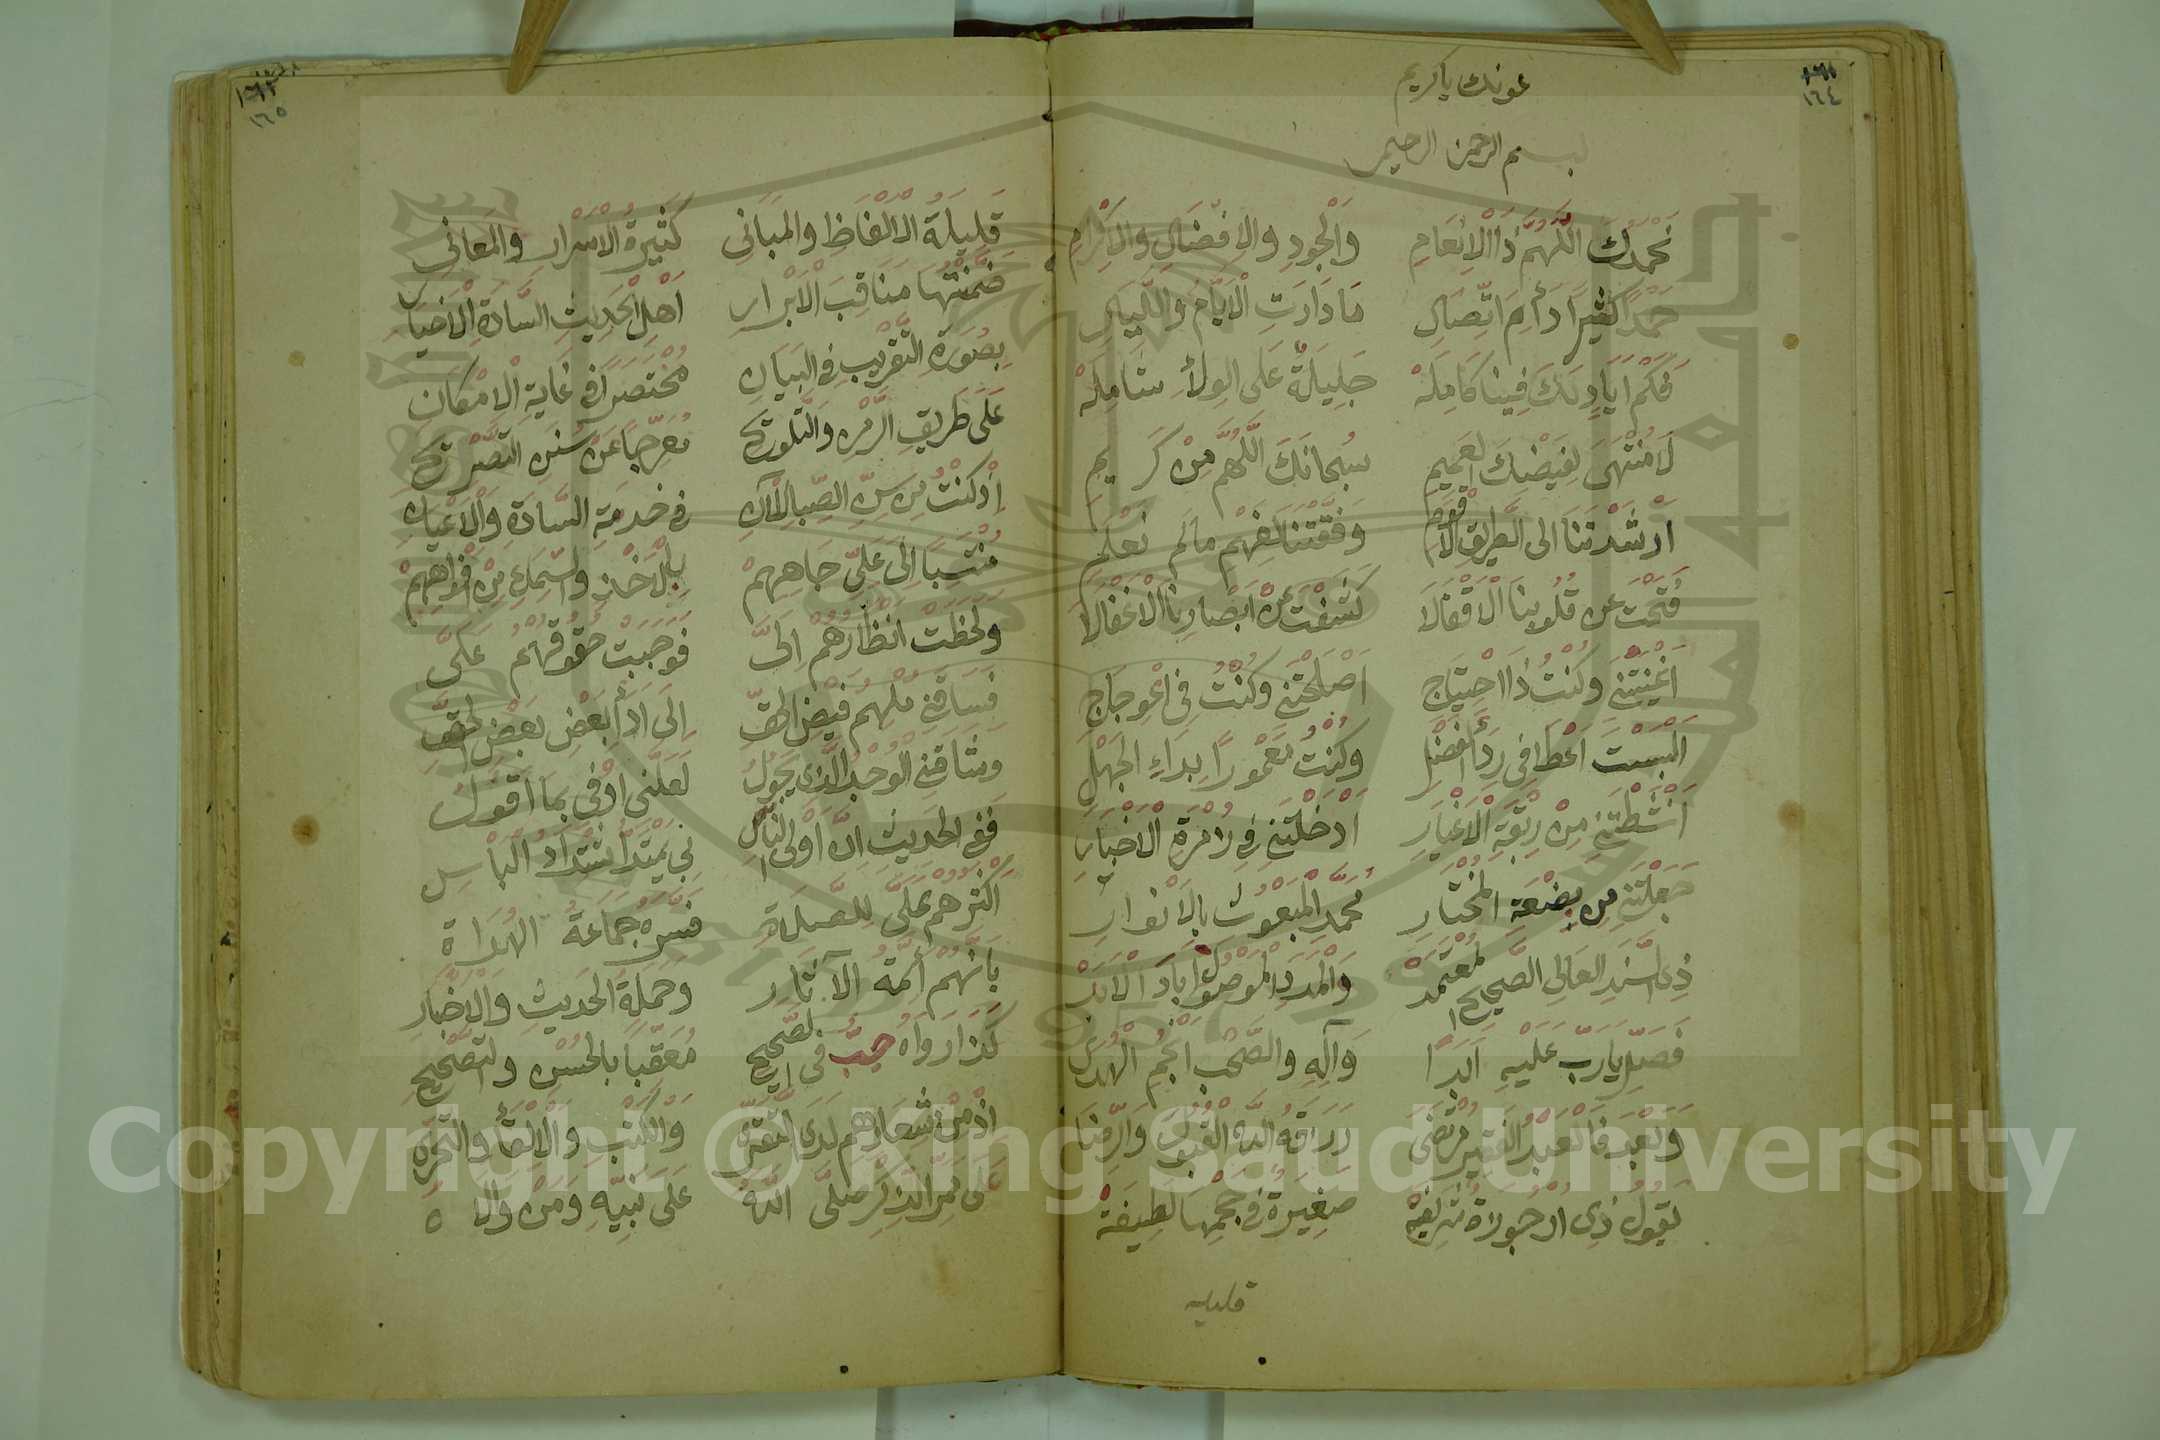 ١٦٤
عونك ياكريم
بسم الرحمن الرحيم
نَحْمَدُكَ اللّٰهُمَّ ذَا الْاِنْعَامِ وَالْجُودِ وَالاِفْضَالِ وَالاِكْرَامِ
حَمْدًا كَثِيْرًا دَأئِمَ اتِّصَالِ مَا دَارَتِ الْاَيَّامُ وَاللَّيَالِي
فَكَمْ اَيَادٍ لَكَ فِينَا كَامِلَهْ جَلِيلَةٌ عَلَى الوِلَأ شَامِلَهْ
لَا مُنْتَهَى لِفَيْضِكَ الْعَمِيمِ سُبحانَكَ اللّٰهُمَّ مِنْ كَرِيمِ
اَرْشَدْتَنَا الى الطَّرِيقِ الاَقْوَمِ وَفَقَّهْتَنَا لِفَهْمِ مالَم نَعْلَمِ
فَتَحْتَ عَن قُلُوبِنَا الْاَقْفَالَا كَشَفْتَ عَنْ اَبْصَارِنَا الاَغْفَالَا
اَغْنَيْتَنِي وَكُنْتُ ذَا احْتِيَاجِ اَصْلَحْتَنِي وَكُنْتُ فِي اعْوِجَاجِ
اَلْبَسْتَ اَعْطَافِي رِدَأ الفَضْلِ وَكُنْتُ مَغْمُورًا بِدَاءِ الجَهْلِ
اَنْشَطْتَنِي مِنْ رِبْقَةِ الْاَغْيَارِ اَدْخَلْتَنِي فِي زُمْرَةِ الْاَخْيَارِ
جَعَلْتَنِي مِن بِضْعَةِ المُخْتَارِ مُحَمَّدِ الْمَبْعُوثِ بِالاَنْوارِ
ذِي السَّنَدِ العَالِي الصَّحِيحِ المُعْتَمَدْ وَالْمَدَدِ الْمَوْصُولِ آبَادَ الْاَبَدْ
فَصَلِّ يَارَبِّ عَلَيْهِ اَبَدَا وَآلِهِ وَالصَّحْبِ اَنْجُمِ الْهُدَى
وَبَعْدُ فَالعَبْدُ الفَقِيرُ مُرْتَضَى رَزَقَهُ اللّٰهُ القَبُولَ وَالرِّضَا
يَقُولُ ذِي اُرْجُوزَةٌ شَرِيْفَهْ صَغِيرَةٌ فِي حَجْمِهَا لَطِيفَهْ
قليلة
١٦٥
قَلِيلَةُ الْاَلْفَاظِ وَالمَبَانِي كَثِيرَةُ الاَسْرَارِ وَالْمَعَانِي
ضَمَّنْتُهَا مَنَاقِبَ الْاَبْرَارِ اَهْلِ الْحَدِيثِ السَّادَةِ الْاَخْيَارِ
بِصُورَةِ التَّقْرِيْبِ فِي البَيَانِ مُخْتَصَرًا فِي غَايَةِ الْاِمْكَانِ
عَلَى طَرِيقِ الرَّمْزِ وَالتَّلْوِيحِ مُعَرِّجًا عَنْ سُنَنِ التَّصْرِيحِ
اِذْ كُنْتُ مِن سِنِّ الصِّبَا لِلْآنِ فِي خِدمَةِ السَّادَةِ وَالْاَعْيَانِ
مُنْتَسِبًا اِلَى عَلِيِّ جَاهِهِمْ بِالْاَخْذِ وَالسَّمَاعِ مِنْ اَفْوَاهِهِمْ
وَلَحَظَت اَنْظَارُهُمْ اِلَيَّ فَوَجَبَتْ حُقُوقُهُمْ عَلَيَّ
فَسَاقَنِي مُلْهِمُ فَيْضِ الحَقِّ اِلَى اَدَأ بَعْضِ بَعْضِ الحَقِّ
وَشَاقَنِي الوَجْدُ الَّذِي يَجُولُ لَعَلَّنِي اُوفِي بِمَا اَقُولُ
فَفِي الحَدِيثِ اِنَّ اَوْلَى النَّاسِ بِي يَمْتَدُّ اشْتِدَادُ الْبَاْسِ
اَكْثَرُهُمْ عَلَيَّ لِلصَّلَاةِ فَسَّرَهُ جَمَاعَةُ الهُدَاةِ
بَاَنَّهُمْ أَئِمَّةُ الآثَارِ وَحَمَلَةُ الحَدِيثِ وَالاَخْبَارِ
كَذَا رَوَاهُ حِبُّ فِي الصَّحِيحِ مُعَقِّبًا بِالحُسْنِ وَالتَصْحِيحِ
اِذْ مِنْ شِعَارِهِم لَدَى التَّقَرِّي وَالْكَتْبِ وَالْاِلْقَأ وَالتَحَرِّي
عَلَى مَمَرِّ الذِّكْرِ صَلَّى اللّٰهُ عَلَى نَبِيِّهِ وَمَنْ وَالَاهُ